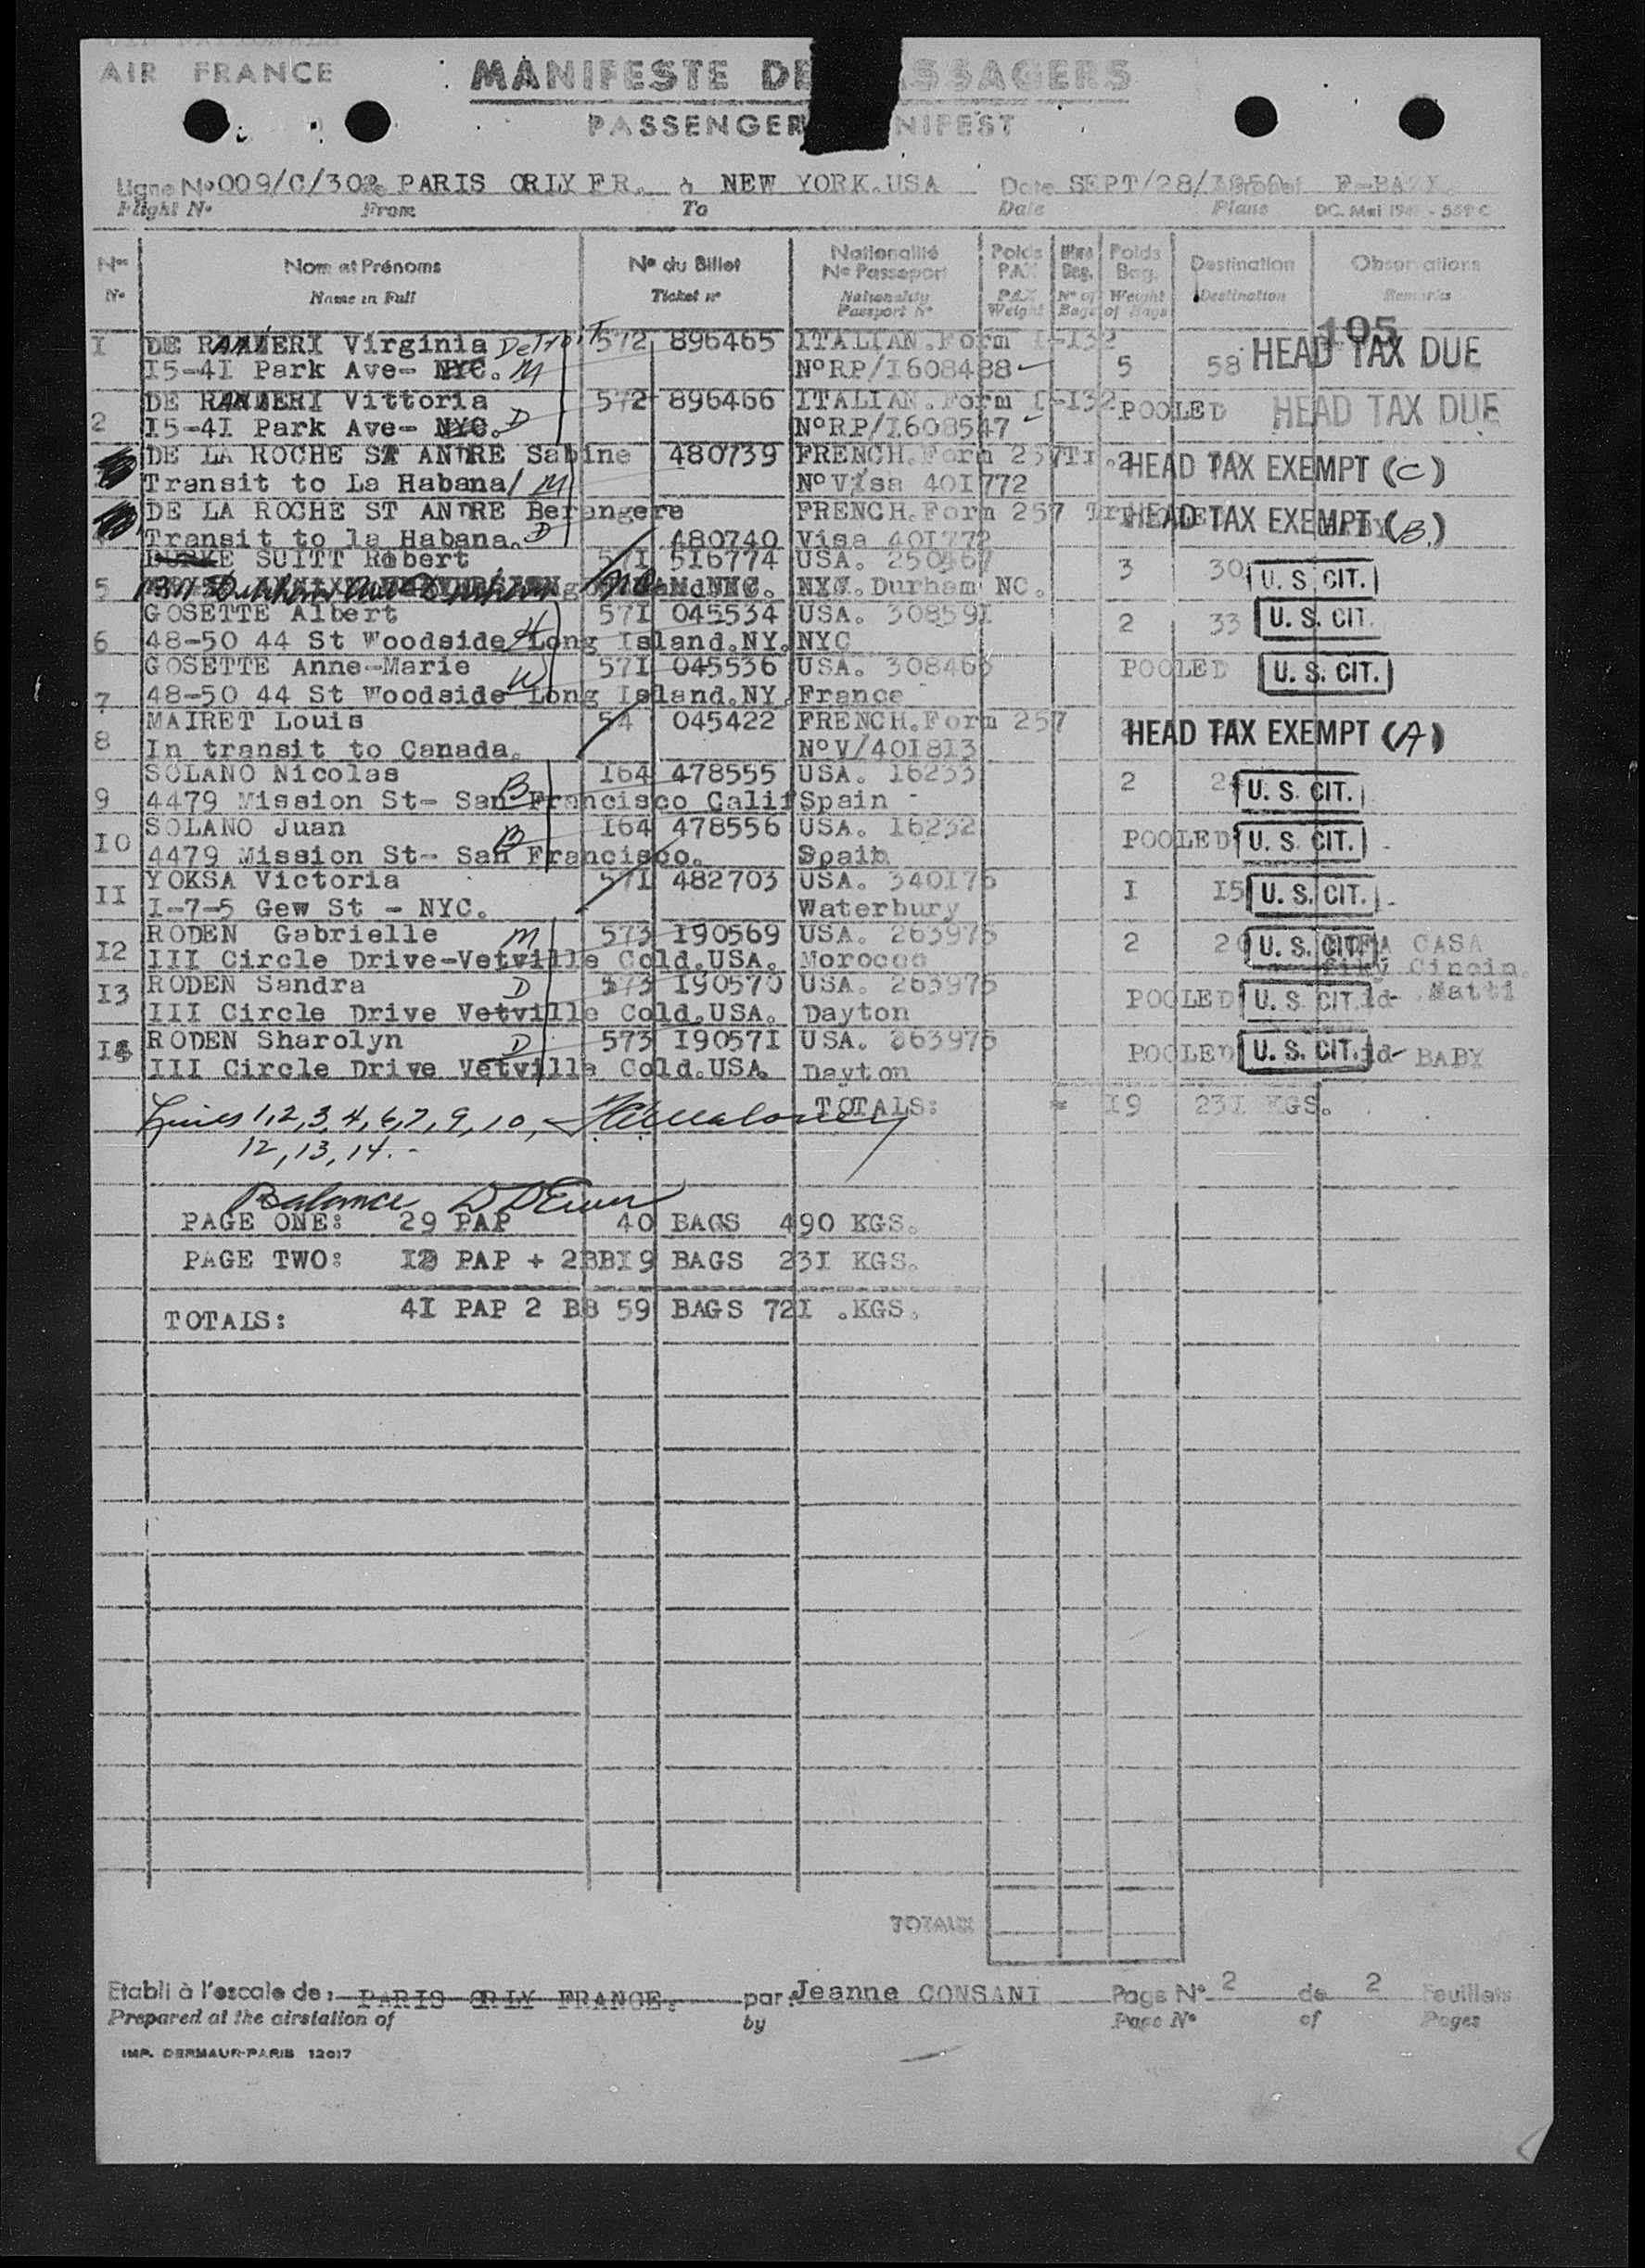 AIR FRANCE
MANIFESTE DE ASSAGERS
PASSENGER NIFEST
Ligne No 009/C/302 de PARIS ORLY FR. à NEW YORK.USA Date SEPT/28/1950
Flight No From To Date Plane DC. Mai 194 - 559 C
Nos Nom et Prénoms No du Billet Nationalité No Passeport Poids PAX Bag. Poids Bag. Destination Observations
No Name in Full Ticket no Nationality Passport No PAX Weight No of Bags Weight of Bags Destination Remarks
105
1 DE RANIERI Virginia Detroit 572 896465 ITALIAN.Form I-I32
I5-4I Park Ave- NYC. M NoRP/I608488 5 58 HEAD TAX DUE
DE RANIERI Vittoria 572 896466 ITALIAN.Form I-I32
2 I5-4I Park Ave- NYC. D NoRP/I608547 POOLED HEAD TAX DUE
DE LA ROCHE ST ANDRE Sabine 480739 FRENCH.Form 257 Tr. 2 HEAD TAX EXEMPT (C)
Transit to La Habana/ M No Visa 40I772
DE LA ROCHE ST ANDRE Berangere FRENCH.Form 257 HEAD TAX EXEMPT (B)
Transit to la Habana. D 480740 Visa 40I772
SUITT Robert 57I 516774 USA. 3 30 U. S. CIT.
5 NYC. Durham NC.
GOSETTE Albert 57I 045534 USA. 30859I 2 33 U. S. CIT.
6 48-50 44 St Woodside Long Island.NY. NYC H
GOSETTE Anne-Marie 57I 045536 USA. 308463 POOLED U. S. CIT.
7 48-50 44 St Woodside Long Island.NY. France W
MAIRET Louis 54 045422 FRENCH.Form 257 HEAD TAX EXEMPT (A)
8 In transit to Canada. No V/40I8I3
SOLANO Nicolas I64 478555 USA. I6233 2 U. S. CIT.
9 4479 Mission St- San Francisco Calif Spain B
SOLANO Juan I64 478556 USA. I6232
I0 4479 Mission St- San Francisco. Spain B POOLED U. S. CIT.
YOKSA Victoria 57I 482703 USA. 340I75 I I5 U. S. CIT.
II I-7-5 Gew St - NYC. Waterbury
RODEN Gabrielle M 573 I90569 USA. 263975 2 U. S. CIT. CASA
I2 III Circle Drive-Vetville Cold.USA. Morocco Cincin.
I3 RODEN Sandra D 573 I90570 USA. 263975 POOLED U. S. CIT. id- Natti
III Circle Drive Vetville Cold.USA. Dayton
I4 RODEN Sharolyn D 573 I9057I USA. 263975 POOLED U. S. CIT. id- BABY
III Circle Drive Vetville Cold.USA. Dayton
TOTALS: I9 23I KGS.
Lines 1,2,3,4,6,7,9,10,
12,13,14.-
Balance
PAGE ONE: 29 PAP 40 BAGS 490 KGS.
PAGE TWO: I2 PAP + 2BB I9 BAGS 23I KGS.
TOTALS: 4I PAP 2 BB 59 BAGS 72I .KGS.
TOTAUX
Etabli à l'escale de: PARIS ORLY FRANCE. par: Jeanne CONSANI Page No 2 de 2 Feuillets
Prepared at the airstation of by Page No of Pages
IMP. DERMAUR-PARIS 12017